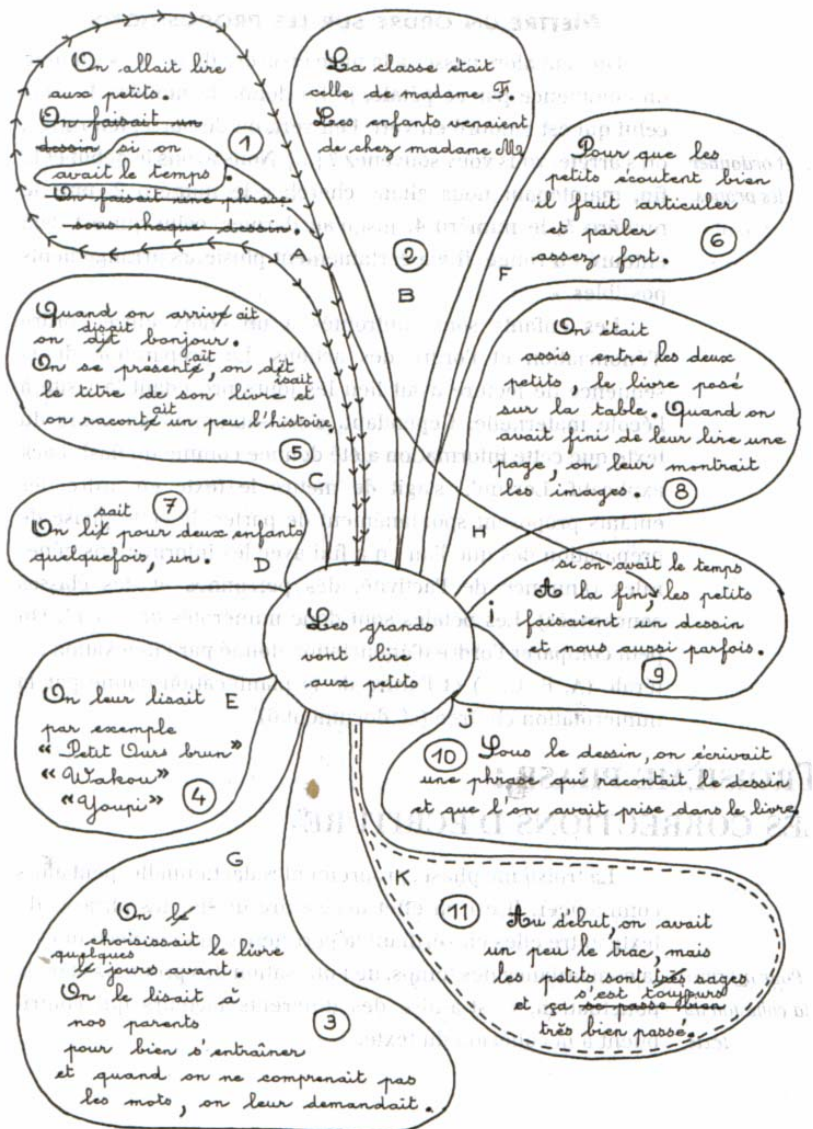 On allait lire
aux petits.
On faisait un
dessin si on
avait le temps.
On faisait une phrase
sous chaque dessin.
1
La classe était
celle de madame F.
Les enfants venaient
de chez madame M.
2
B
Pour que les
petits écoutent bien
il faut articuler
et parler
assez fort.
6
F
et ordonner
Quand on arrivait
on disait bonjour.
On se présentait, on disait
le titre de son livre et
on racontait un peu l'histoire.
5
C
On était
assis entre les deux
petits, le livre posé
sur la table. Quand on
avait fini de leur lire une
page, on leur montrait
les images.
8
H
7
On lisait pour deux enfants
quelquefois, un.
D
Les grands
vont lire
aux petits
si on avait le temps
A la fin, les petits
faisaient un dessin
et nous aussi parfois.
9
i
On leur lisait
par exemple
"Petit Ours brun"
"Wakou"
"Youpi"
4
E
j
10
Sous le dessin, on écrivait
une phrase qui racontait le dessin
et que l'on avait prise dans le livre
G
On le
choisissait le livre
quelques
jours avant.
On le lisait à
nos parents
pour bien s'entraîner
et quand on ne comprenait pas
les mots, on leur demandait.
3
K
11
Au début, on avait
un peu le trac, mais
les petits sont très sages
s'est toujours
et ça se passe bien
très bien passé.